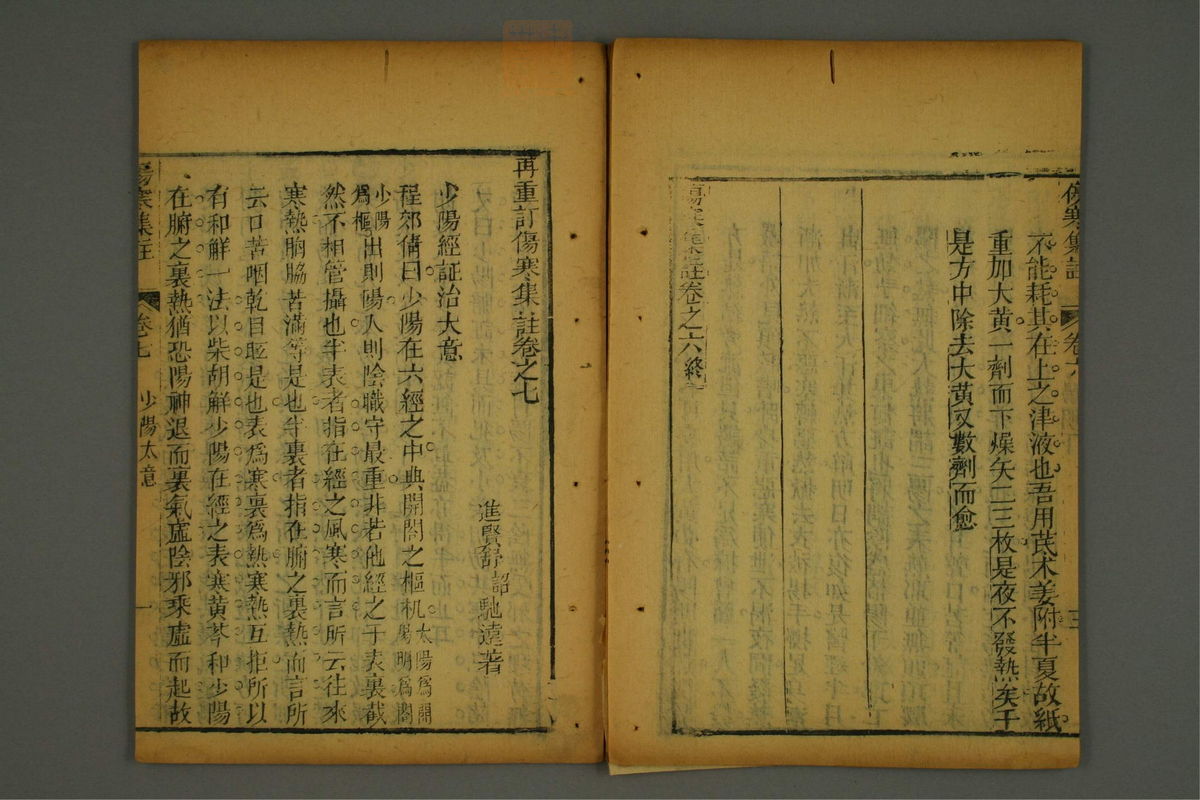 傷寒集註
卷六
三
不能耗其在上之津液也吾用茋术姜附半夏故紙
重加大黄一劑而下燥矢二三枚是夜不發熱矣于
是方中除去大黄又數劑而愈
傷寒集註卷之六終
再重訂傷寒集註卷之七
進賢舒詔馳遠著
少陽經証治大意
程郊倩曰少陽在六經之中典開閤之樞机太陽爲開陽明爲闔
少陽爲樞出則陽入則陰職守最重非若他經之于表裏截
然不相管攝也半表者指在經之風寒而言所云往來
寒熱胸脇苦滿等是也半裏者指在腑之裏熱而言所
云口苦咽乾目眩是也表爲寒裏爲熱寒熱互拒所以
有和解一法以柴胡解少陽在經之表寒黄芩和少陽
在腑之裏熱猶恐陽神退而裏氣虛陰邪乘虛而起故
傷寒集註
卷七
少陽大意
一